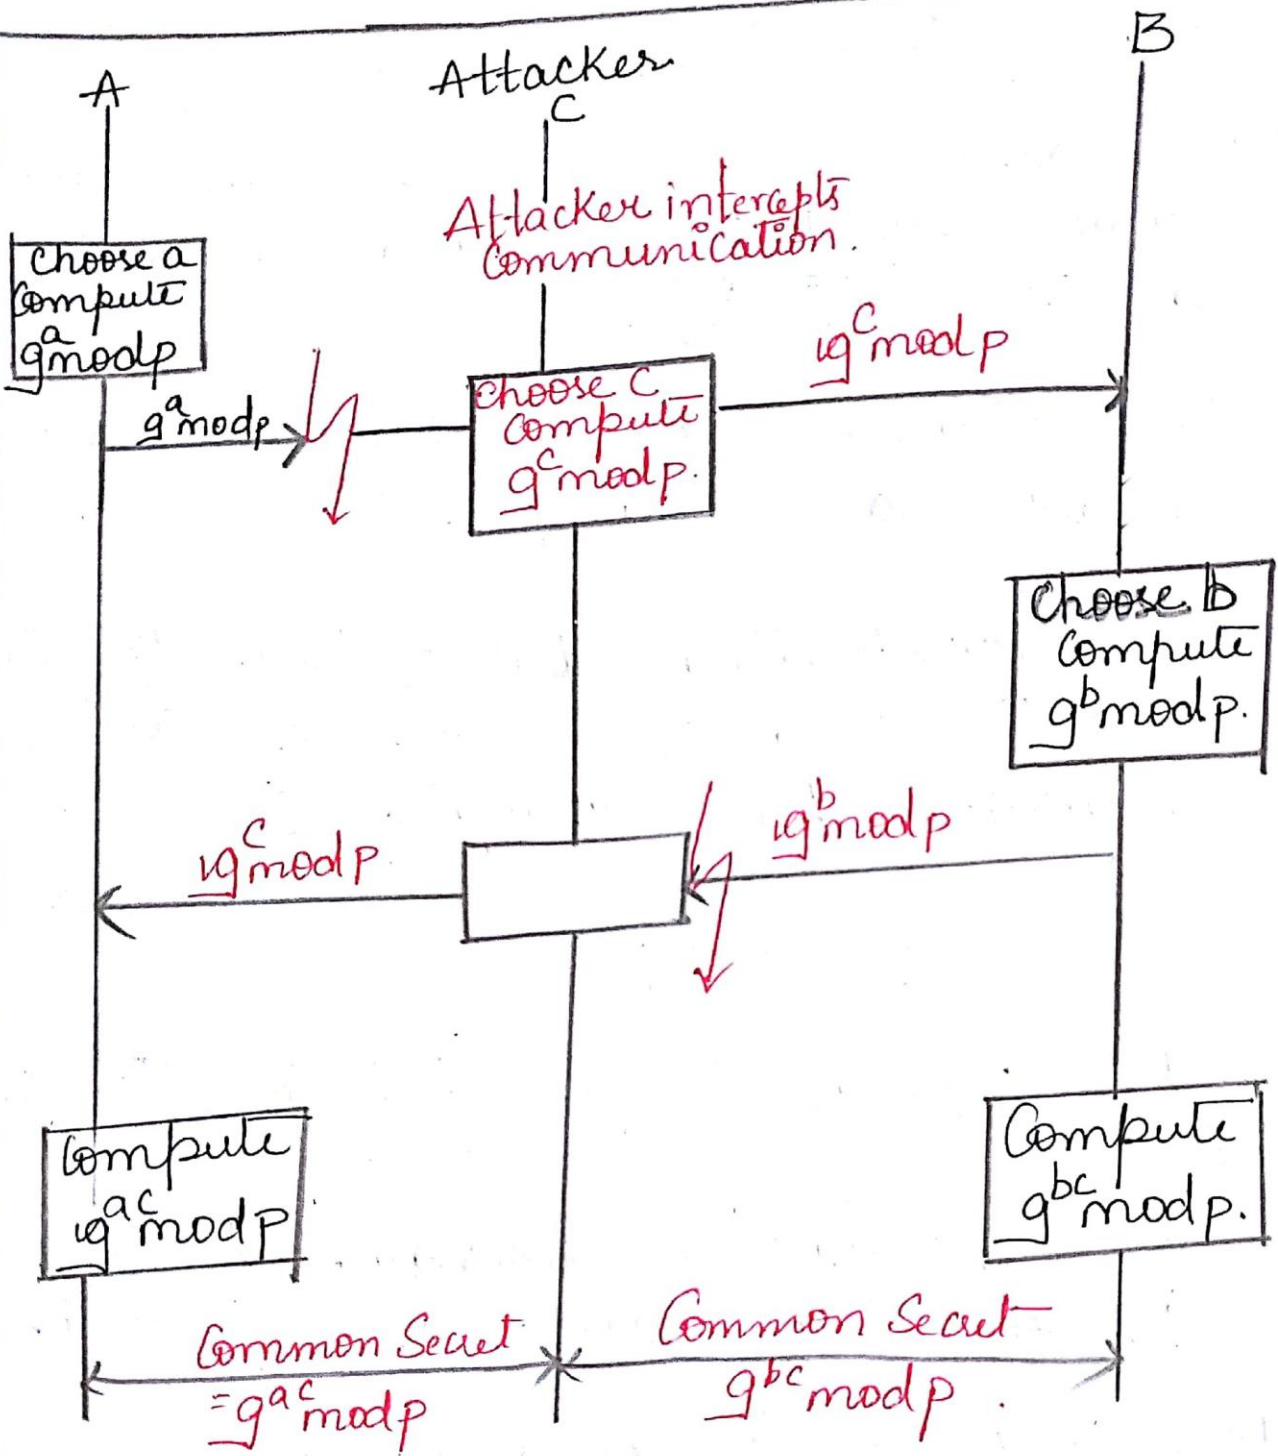 A
Attacker
C
B
Attacker intercepts
Communication.
Choose a
Compute
g^a mod p
g^a mod p
Choose C
Compute
g^c mod p.
g^c mod p
Choose b
Compute
g^b mod p.
g^b mod p
g^c mod p
Compute
g^ac mod p
Compute
g^bc mod p.
Common Secret
= g^ac mod p
Common Secret
g^bc mod p.